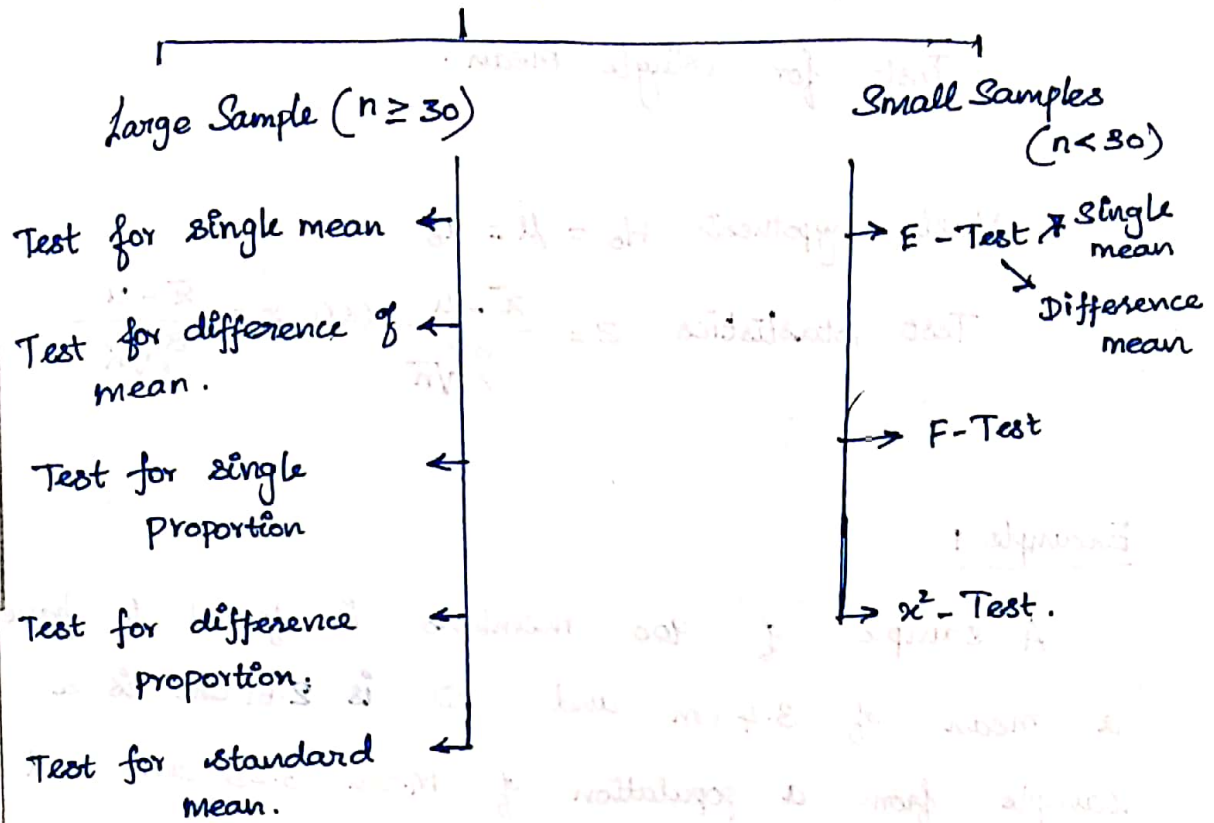 Large Sample (n ≥ 30)
Test for single mean
Test for difference of
mean.
Test for single
proportion
Test for difference
proportion.
Test for standard
mean.
Small Samples
(n < 30)
E - Test
Single
mean
Difference
mean
F - Test
x² - Test.